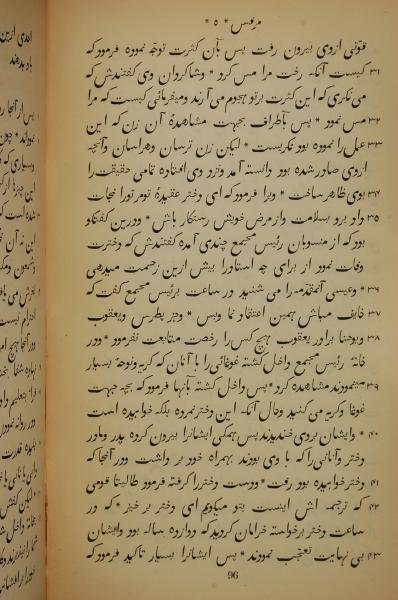 مرقس * ۵ *
قوّتی ازوی بیرون رفت پس بآن کثرت توجّه نموده فرمود که
۳۱ کیست آنکه رخت مرا مس کرد * وشاکردان وی کفتندش که
می نکری که این کثرت برتو هجوم می آرند ومیفرمائی کیست که مرا
۳۲ مس نمود * پس بأطراف بجهت مشاهدهٔ آن زن که این
۳۳ عمل را نموده بود نکریست * لیکن زن ترسان وهراسان وآنچه
ازوی صادر شده بود دانسته آمد ونزد وی افتاده تمامی حقیقت را
۳۴ بوی ظاهر ساخت * ویرا فرمود که ای دختر عقیدهٔ تو مر تورا نجات
۳۵ داد برو بسلامت واز مرض خویش رستکار باش * ودرین کفتکو
بود که از منسوبان رئیس مجمع چندی آمده کفتندش که دخترت
وفات نمود از برای چه استادرا بیش ازین زحمت میدهی
۳۶ * وعیسی آنمقدّمه را می شنید در ساعت برئیس مجمع کفت که
۳۷ خایف مباش همین اعتقاد نما وبس * وجز پطرس ویعقوب
۳۸ ویوحنا برادر یعقوب هیچ کس را رخصت متابعت نفرمود * ودر
خانهٔ رئیس مجمع داخل کشته غوغائی را با آنان که کریه ونوحه بسیار
۳۹ مینمودند مشاهده کرد * پس داخل کشته بآنها فرمود که بچه جهت
غوغا وکریه می کنید وحال آنکه این دختر نمرده بلکه خوابیده است
۴۰ * وایشان بروی خندیدند پس همکی ایشانرا بیرون کرده پدر ومادر
دختر وآنانی را که با وی بودند بهمراه خود بر داشت ودر آنجا که
۴۱ دختر خوابیده بود رفت * ودست دختررا کرفته فرمود طالیثا قومی
۴۲ که ترجمه اش اینست بتو میکویم ای دختر بر خیز * که در
ساعت دختر برخاسته خرامان کردید که دوازده ساله بود وایشان
۴۳ بی نهایت تعجّب نمودند * پس ایشانرا بسیار تاکید فرمود که
96